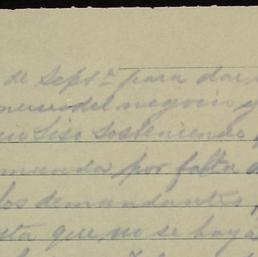 de Sepre. para dar
del negocio y
Liso sosteniendo
manda por falta d
los demandantes,
sta que no se haya